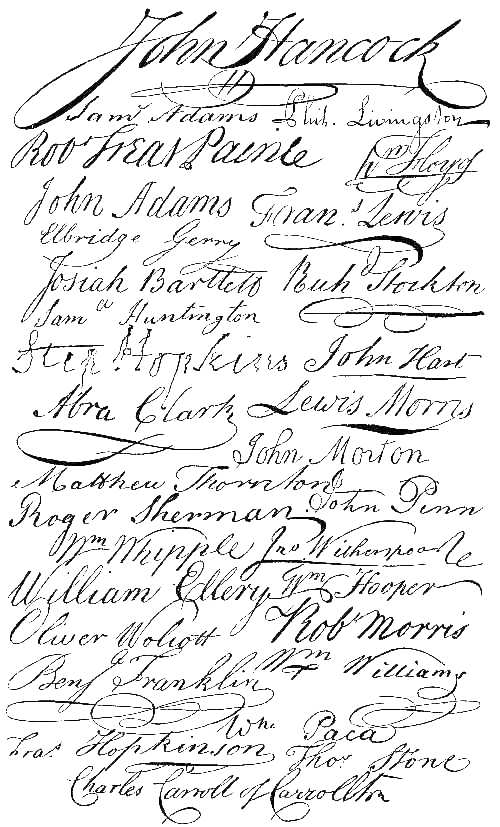 John Hancock
Samˡ Adams Phil. Livingston
Robᵗ Treat Paine Wᵐ Floyd
John Adams Franˢ Lewis
Elbridge Gerry
Josiah Bartlett Richᵈ Stockton
Samᵉˡ Huntington
Step Hopkins John Hart
Abra Clark Lewis Morris
John Morton
Matthew Thornton
Roger Sherman John Penn
Wᵐ Whipple Jnᵒ Witherspoon
William Ellery Wᵐ Hooper
Oliver Wolcott Robᵗ Morris
Benjᵃ Franklin Wᵐ Williams
Wᵐ Paca
Fraˢ Hopkinson Thoˢ Stone
Charles Carroll of Carrollton